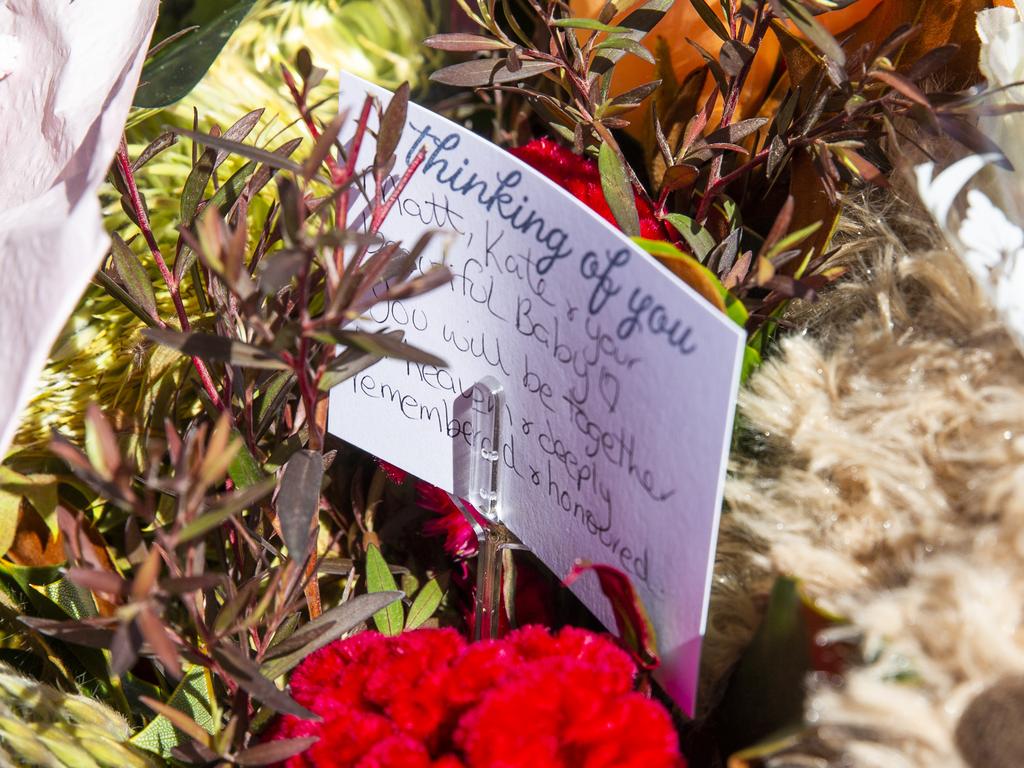 Thinking of you
Matt, Kate & your
Baby ♡
will be together
heaven & deeply
remembered & honoured.